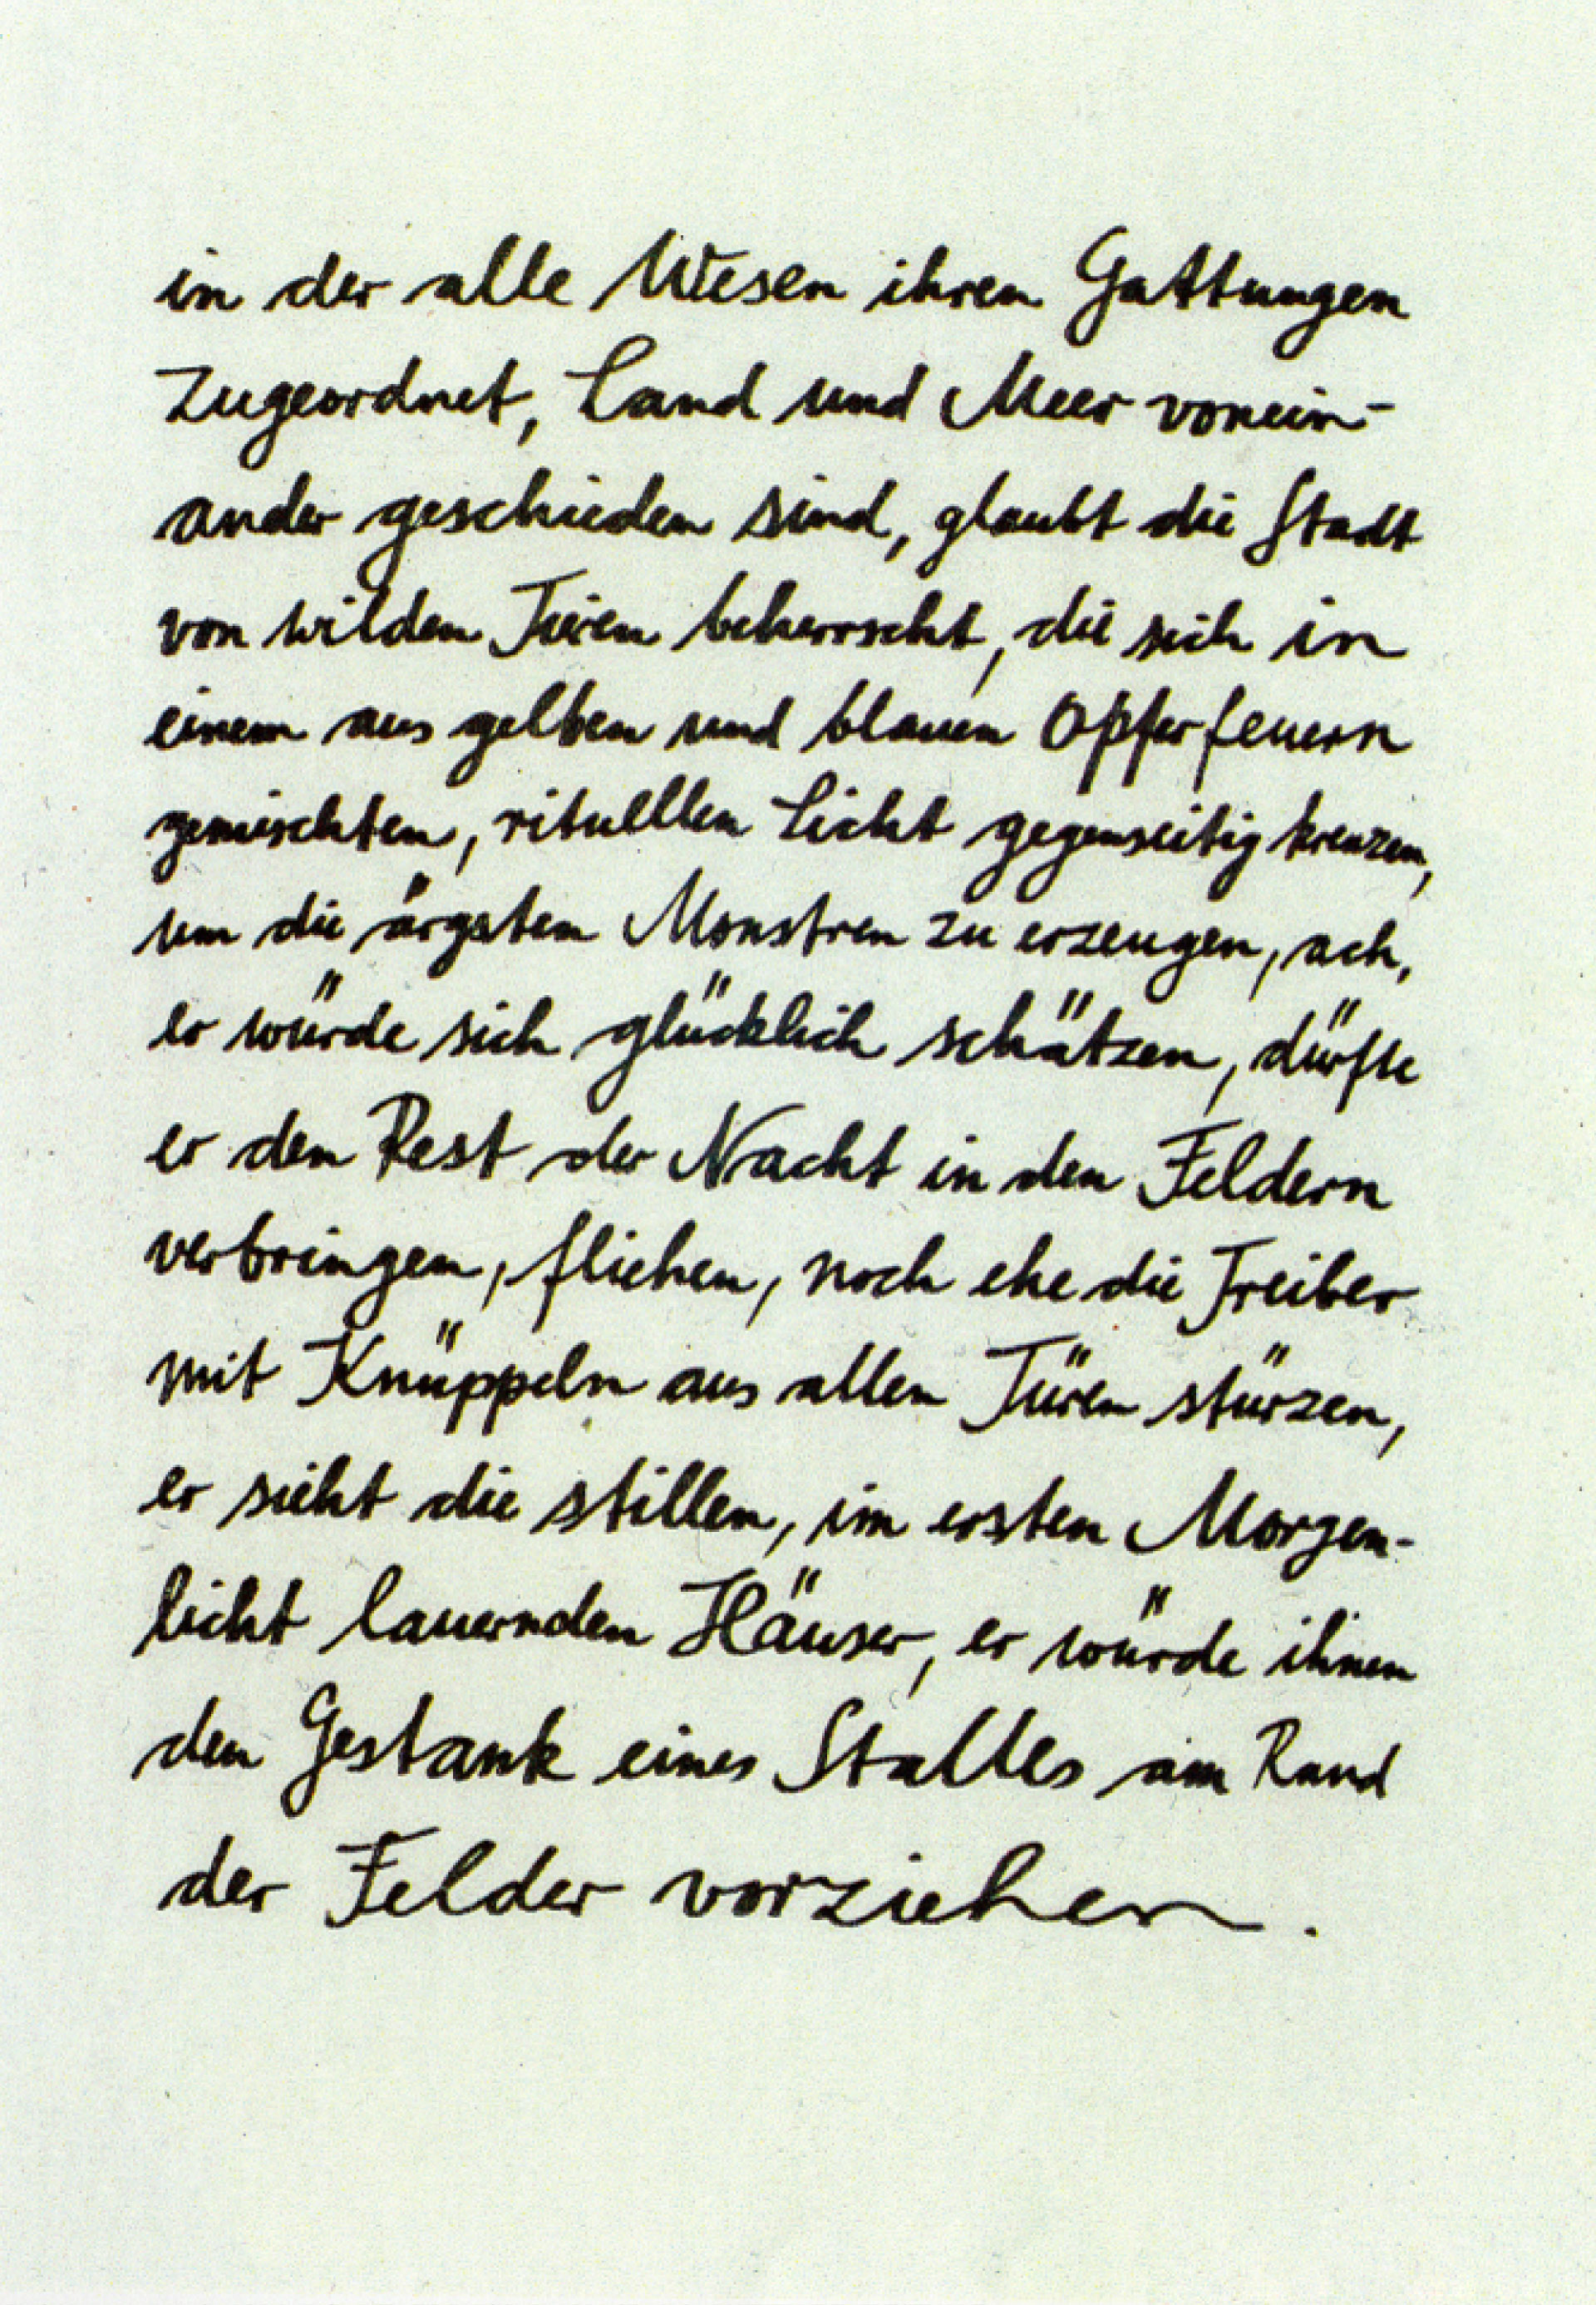 in der alle Wesen ihren Gattungen
zugeordnet, Land und Meer vonein-
ander geschieden sind, glaubt die Stadt
von wilden Tieren beherrscht, die sich in
einem aus gelben und blauen Opferfeuern
gemischten, rituellen Licht gegenseitig kreuzen,
um die ärgsten Monstren zu erzeugen, ach,
er würde sich glücklich schätzen, dürfte
er den Rest der Nacht in den Feldern
verbringen, fliehen, noch ehe die Treiber
mit Knüppeln aus allen Türen stürzen,
er sieht die stillen, im ersten Morgen-
licht lauernden Häuser, er würde ihnen
den Gestank eines Stalles am Rand
der Felder vorziehen.